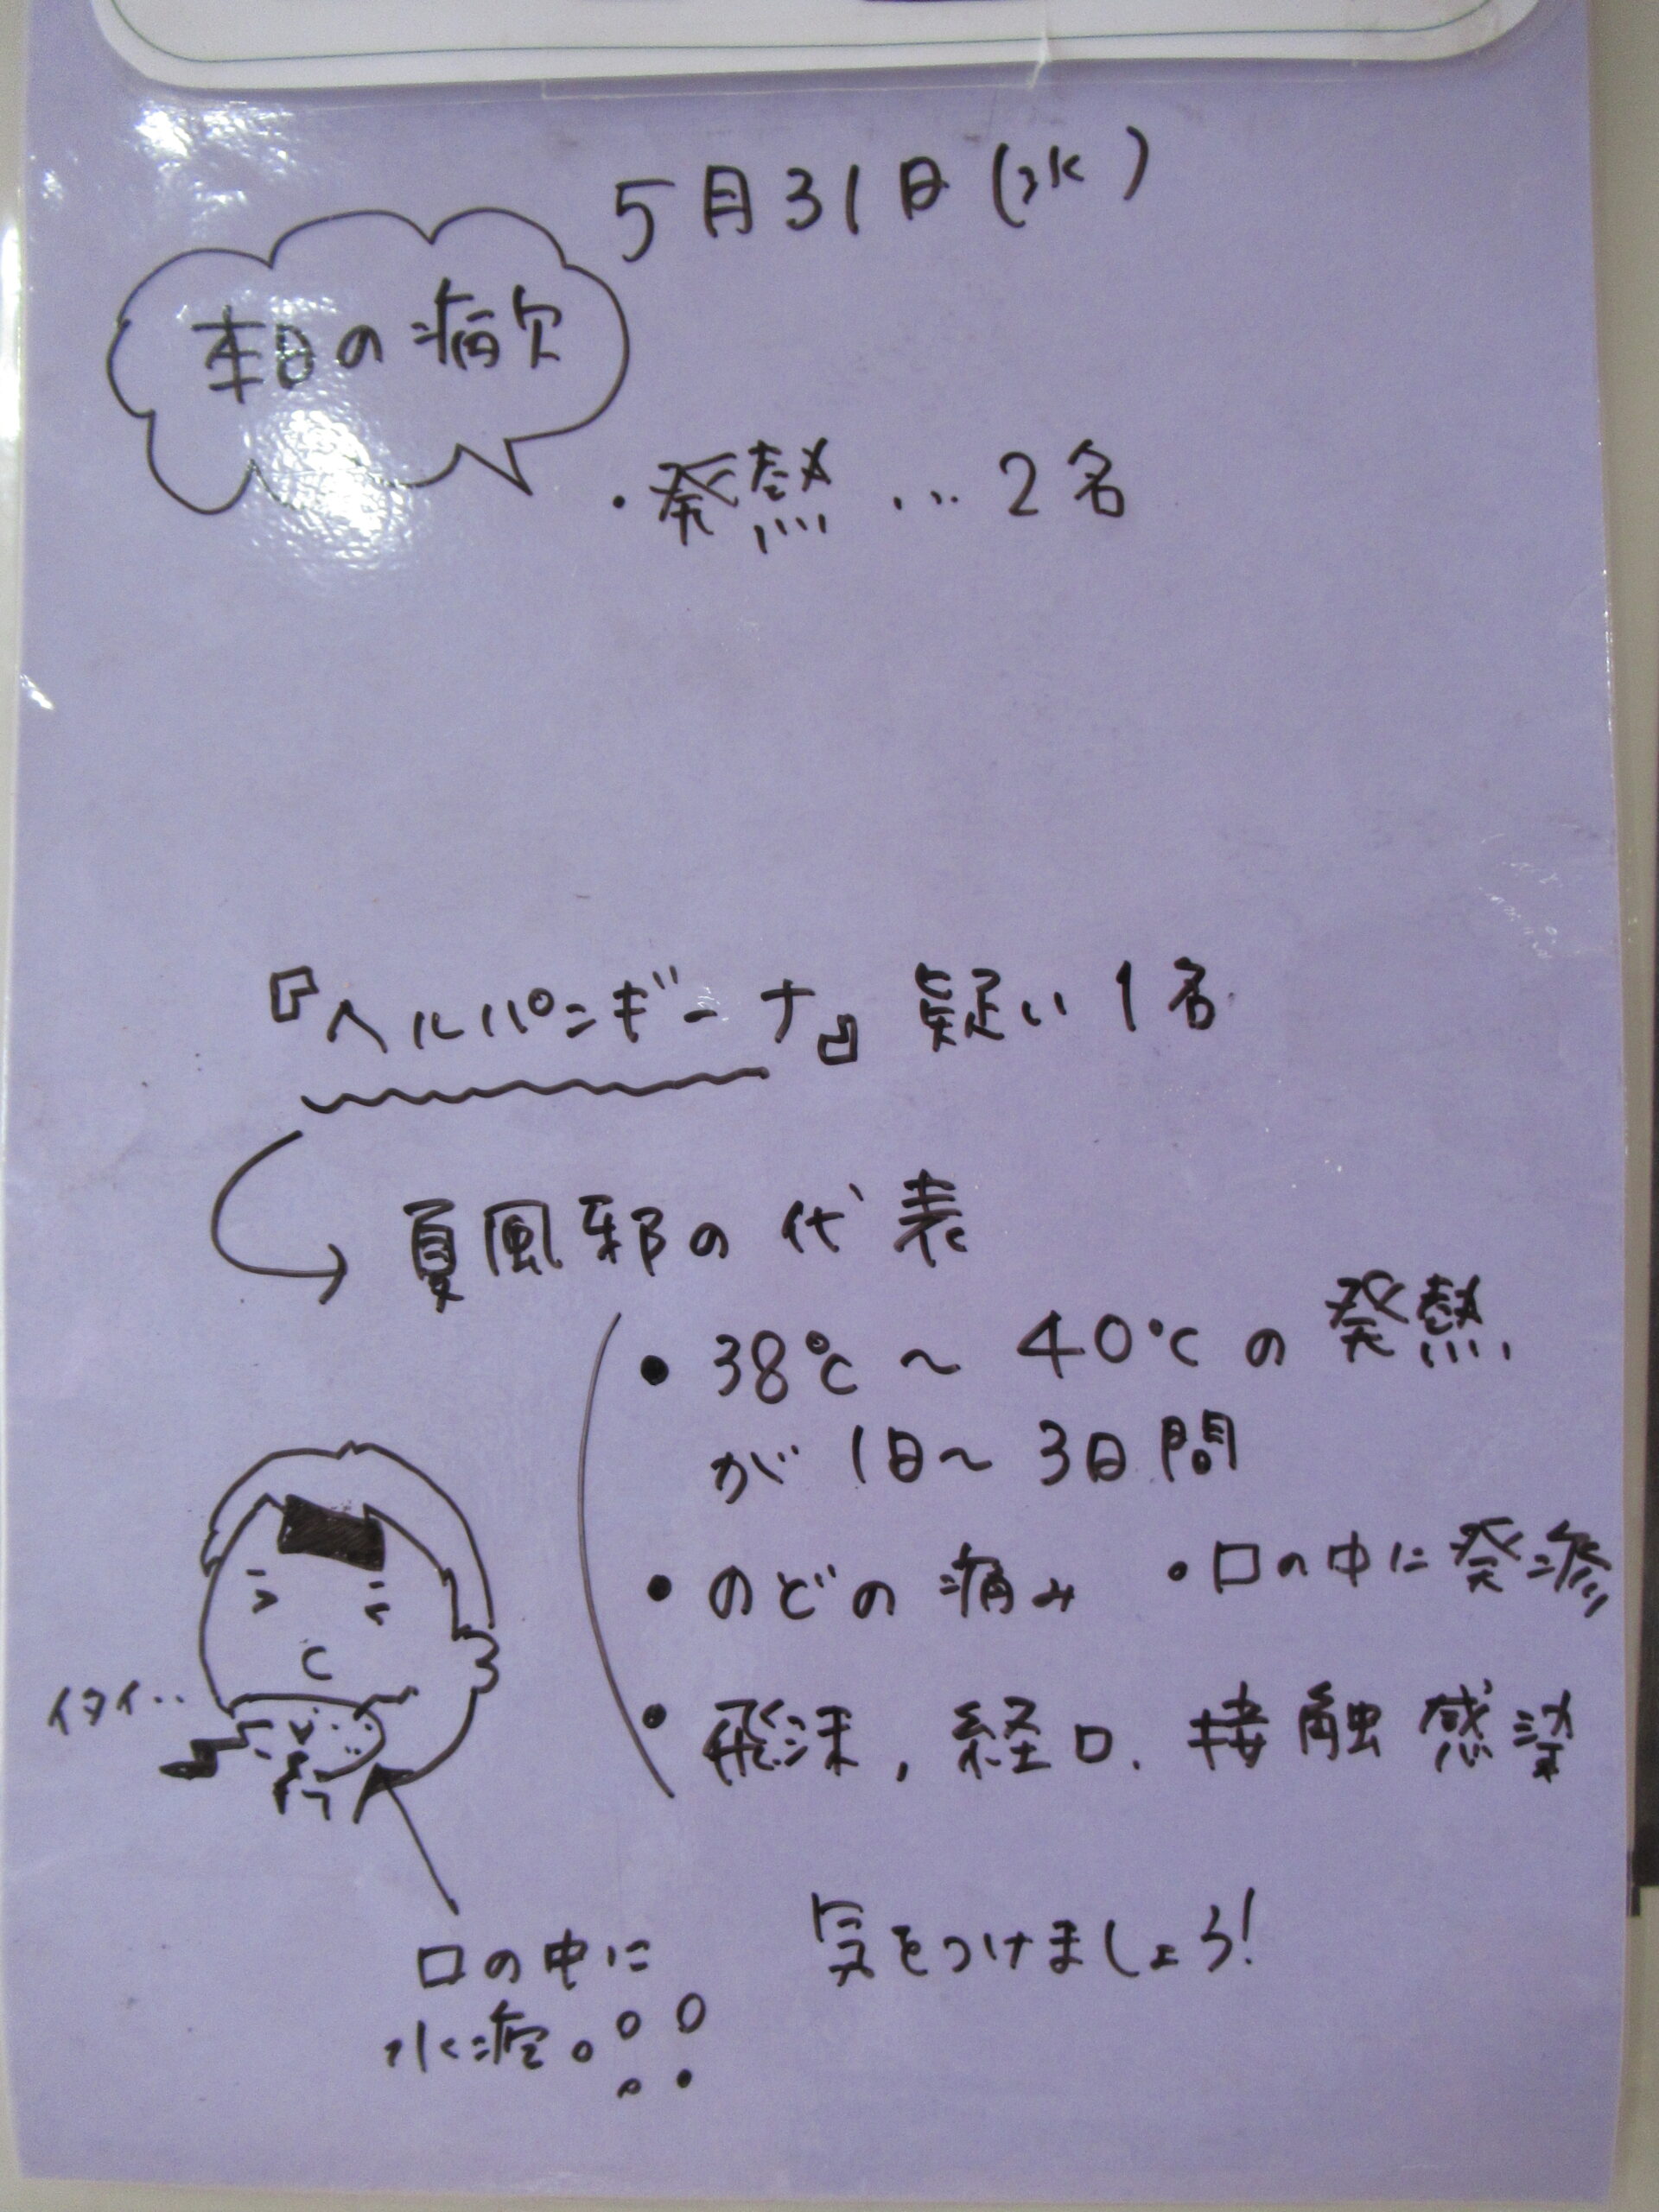 5月31日(水)
本日の病欠
・発熱…2名
『ヘルパンギーナ』疑い1名
夏風邪の代表
・38℃～40℃の発熱
が1日～3日間
・のどの痛み ・口の中に発疹
・飛沫,経口,接触感染
イタイ‥
口の中に
水疱
気をつけましょう!